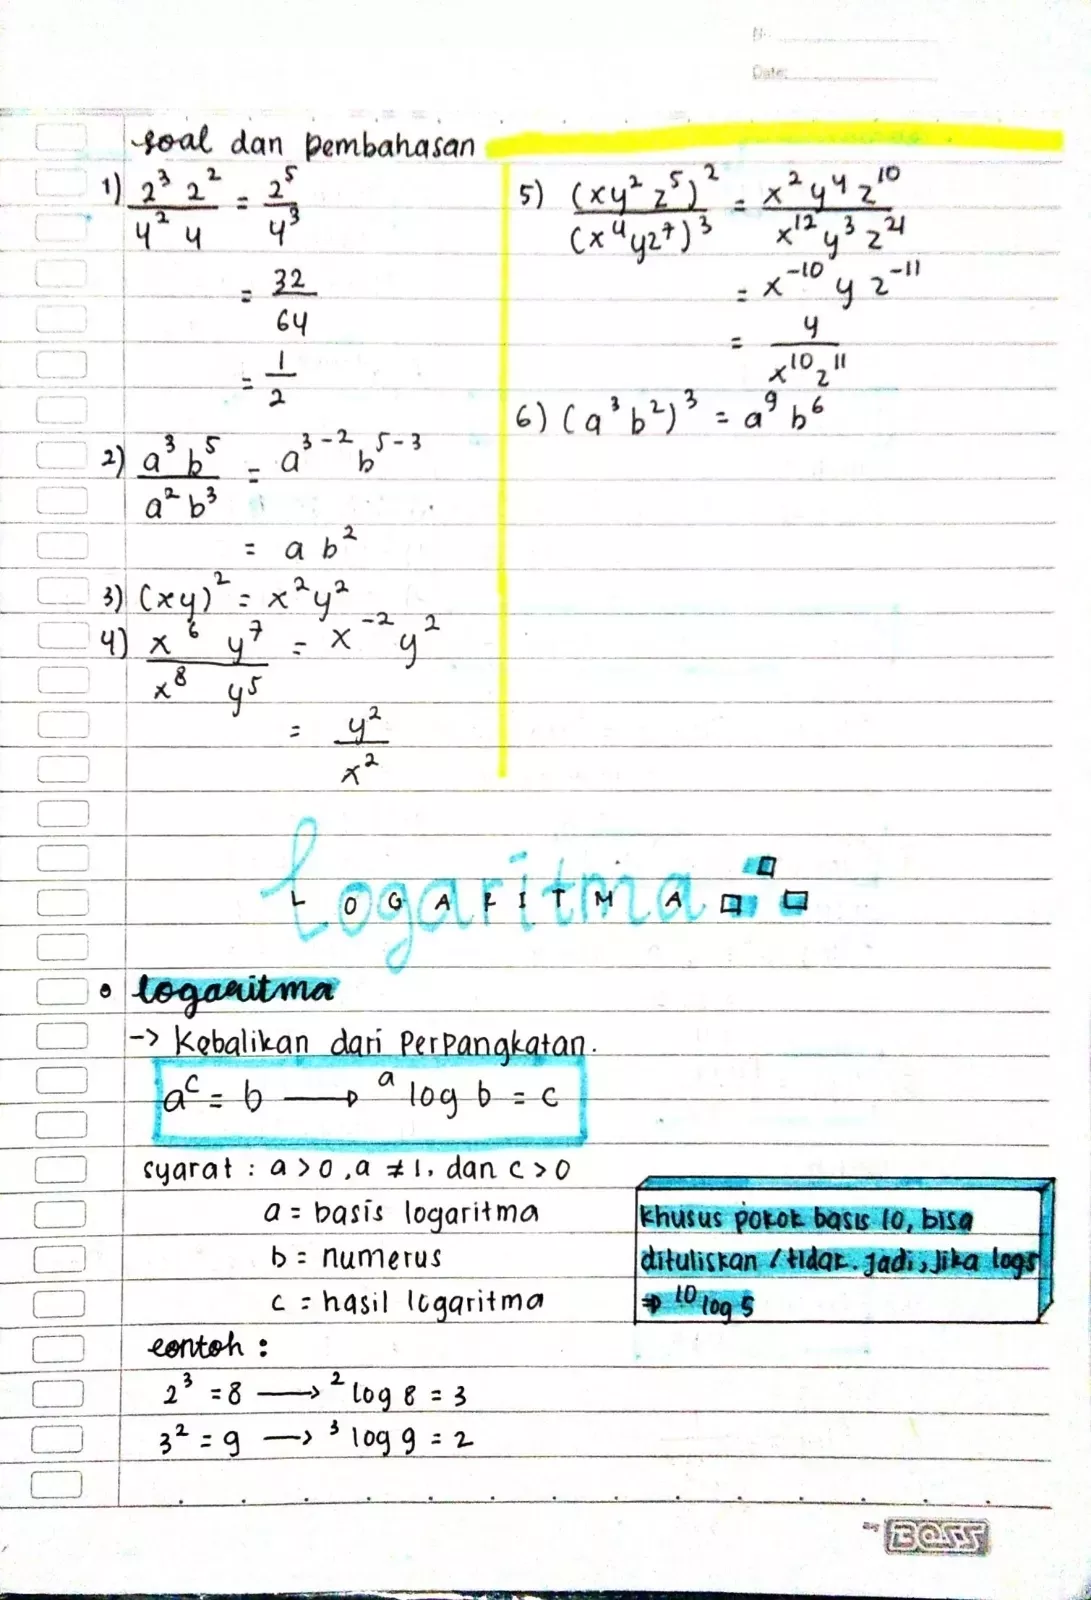 No.
Date:
soal dan pembahasan
1) 2³ 2² / 4² 4 = 2⁵ / 4³
= 32 / 64
= 1 / 2
2) a³ b⁵ / a² b³ = a³⁻² b⁵⁻³
= a b²
3) (xy)² = x²y²
4) x⁶ y⁷ / x⁸ y⁵ = x⁻² y²
= y² / x²
5) (xy² z⁵)² / (x⁴yz⁷)³ = x² y⁴ z¹⁰ / x¹² y³ z²¹
= x⁻¹⁰ y z⁻¹¹
= y / x¹⁰z¹¹
6) (a³ b²)³ = a⁹ b⁶
Logaritma
LOGARITMA
• logaritma
-> Kebalikan dari Perpangkatan.
aᶜ = b → ᵃ log b = c
syarat : a > 0, a ≠ 1, dan c > 0
a = basis logaritma
b = numerus
c = hasil logaritma
khusus pokok basis 10, bisa
dituliskan / tidak. jadi, jika log5
⇒ ¹⁰ log 5
contoh :
2³ = 8 → ² log 8 = 3
3² = 9 → ³ log 9 = 2
BOSS